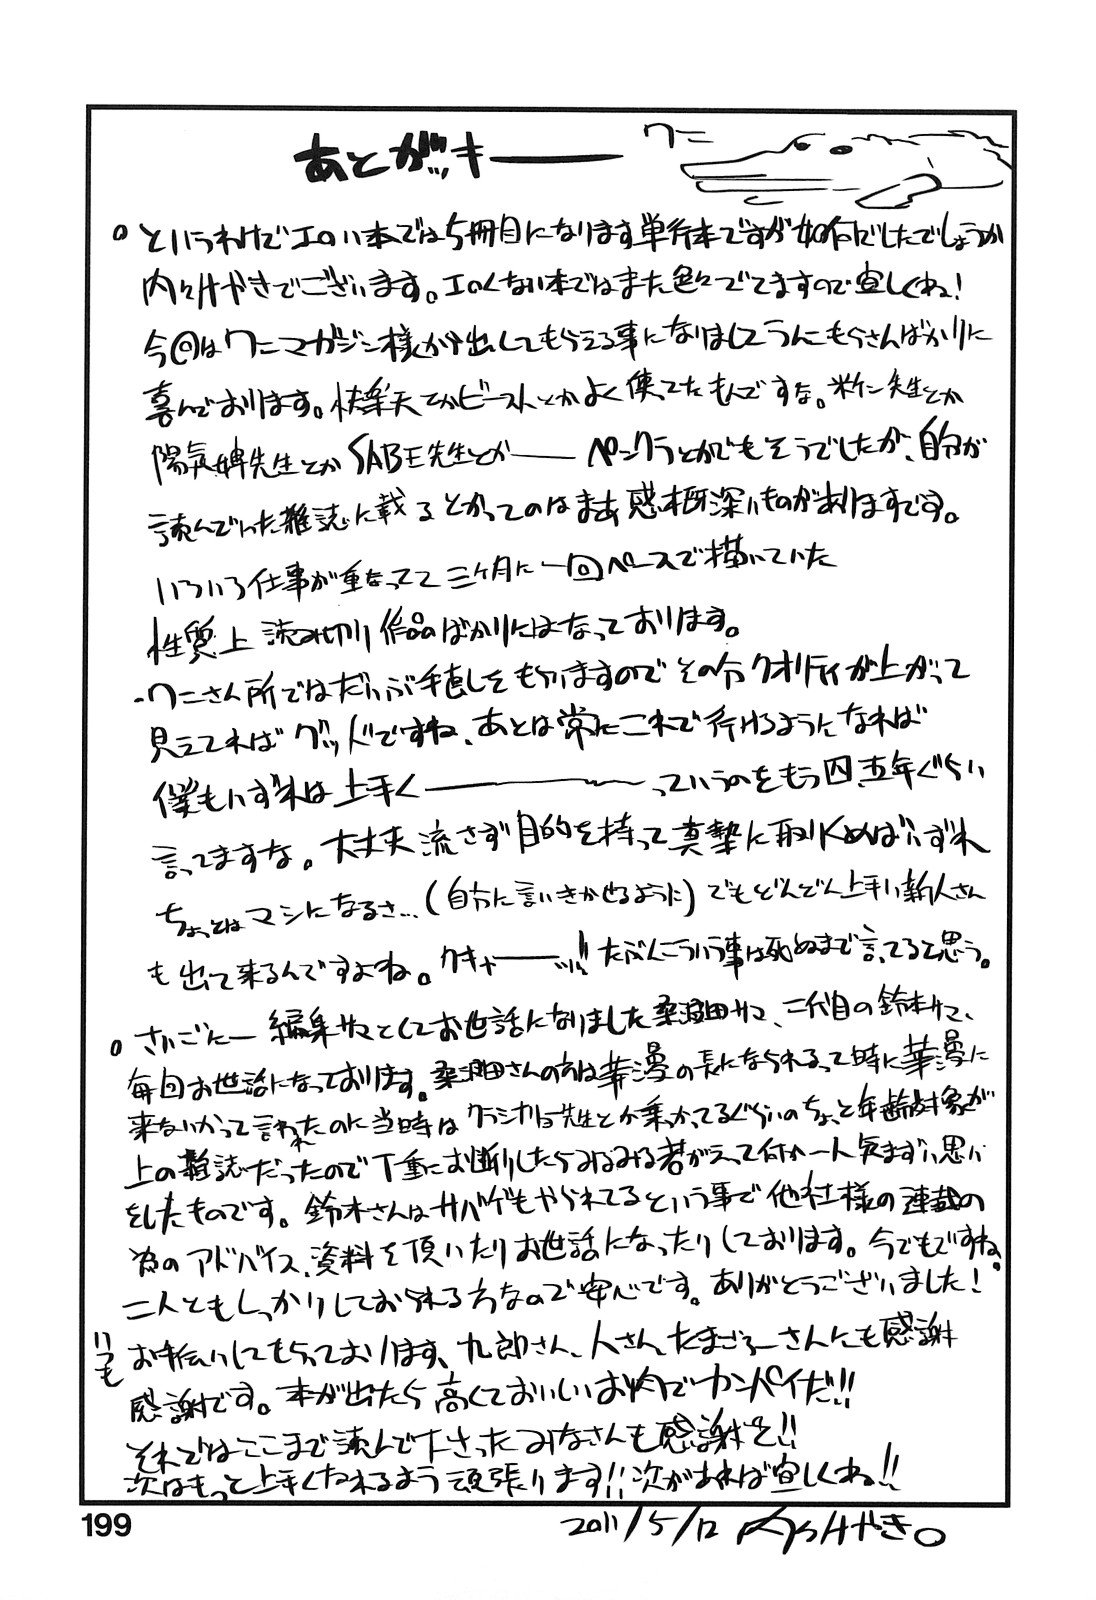 あとがッキ――
ワニ
。というわけでエロい本では5冊目になります単行本ですが如何でしたでしょうか
内々けやきでございます。エロくない本ではまた色々でてますので宜しくね!
今回はワニマガジン様から出してもらえる事になりましてうんにもらさんばかりに
喜んでおります。快楽天とかビーストとかよく使ってたもんですな。米仁先生とか
陽気婢先生とかSABE先生とか―― ペンクラとかでもそうでしたが、自分が
読んでいった雑誌に載るとかってのはまあ感概深いものがありますです。
いろいろ仕事が重なってて三ヶ月に一回ペースで描いていた
性質上 読み切り作品ばかりにはなっております。
・ワニさん所ではだいぶ手直しをもらいますのでその分クオリティが上がって
見えてればグッドですね、あとは常にこれで行けるようになれば
僕もいずれは上手く――――っていうのをもう四、五年ぐらい
言ってますな。大丈夫 流さず目的を持って真摯に取りくめばいずれ
ちょっとはマシになるさ…(自分に言いきかせるように) でもどんどん上手い新人さん
も出て来るんですよね。クキャ――ッ!! たぶんこういう事は死ぬまで言ってると思う。
。さいごにー 編集サマとしてお世話になりました桑田サマ、二代目の鈴木サマ、
毎回お世話になっております。桑田さんの方は華漫の長になられるって時に華漫に
来ないかって言われたのに当時はクジラ先生とか乗っかってるぐらいのちょっと年齢対象が
上の雑誌だったので丁重にお断りしたらみるみる若がえって何か一人気まずい思い
をしたものです。鈴木さんはサバゲもやられてるという事で他社様の連載の
為のアドバイス、資料を頂いたりお世話になったりしております。今でもですね。
二人ともしっかりしておられる方なので安心です。ありがとうございました!
いつも
お手伝いしてもらっております、九郎さん、人さん、たまごろーさんにも感謝
感謝です。本が出たら高くておいしいお肉でカンパイだ!!
それではここまで読んで下さったみなさんも感謝を!!
次はもっと上手くなれるよう頑張ります!!次があれば宜しくね!!
199
2011/5/12 内々けやき。